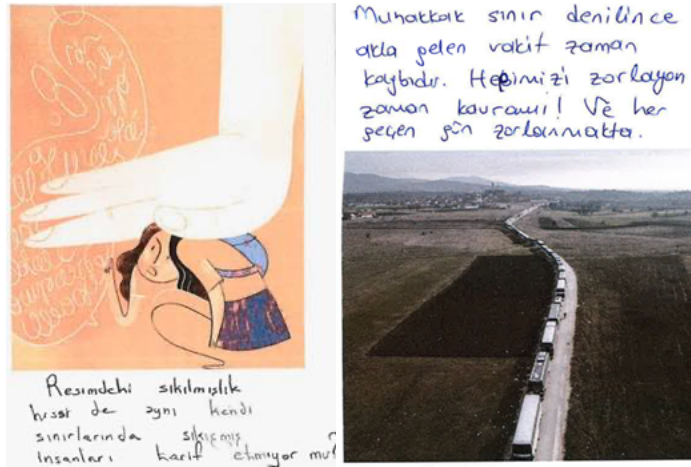 Resimdeki sıkılmışlık
hissi de aynı kendi
sınırlarında sıkışmış
insanları tarif etmiyor mu
Muhakkak sınır denilince
akla gelen vakit zaman
kaybıdır. Hepimizi zorlayan
zaman kavramı! Ve her
geçen gün zorlanmakta.